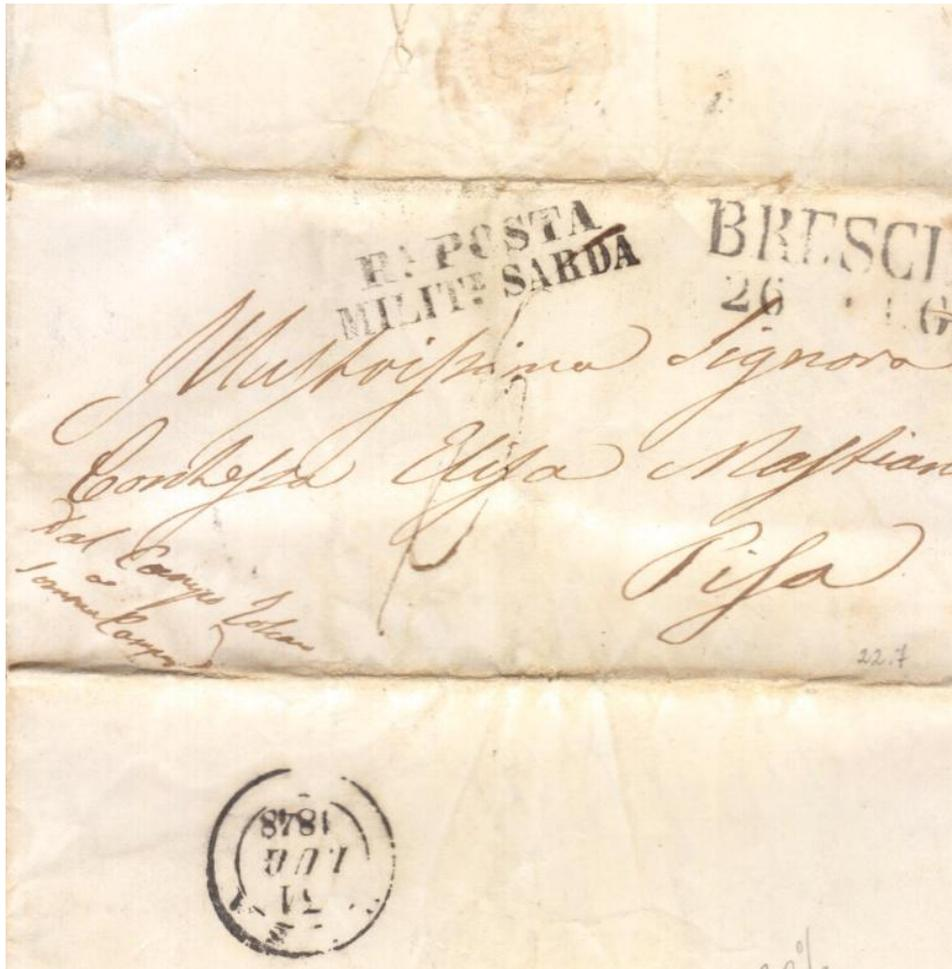 Rª POSTA
MILITᴱ SARDA
BRESCI
26 LUG
Illustrissima Signora
Contessa Elisa Mastian
Pisa
Dal Campo
a
Somma Campa
22.7
31
LUG
1848